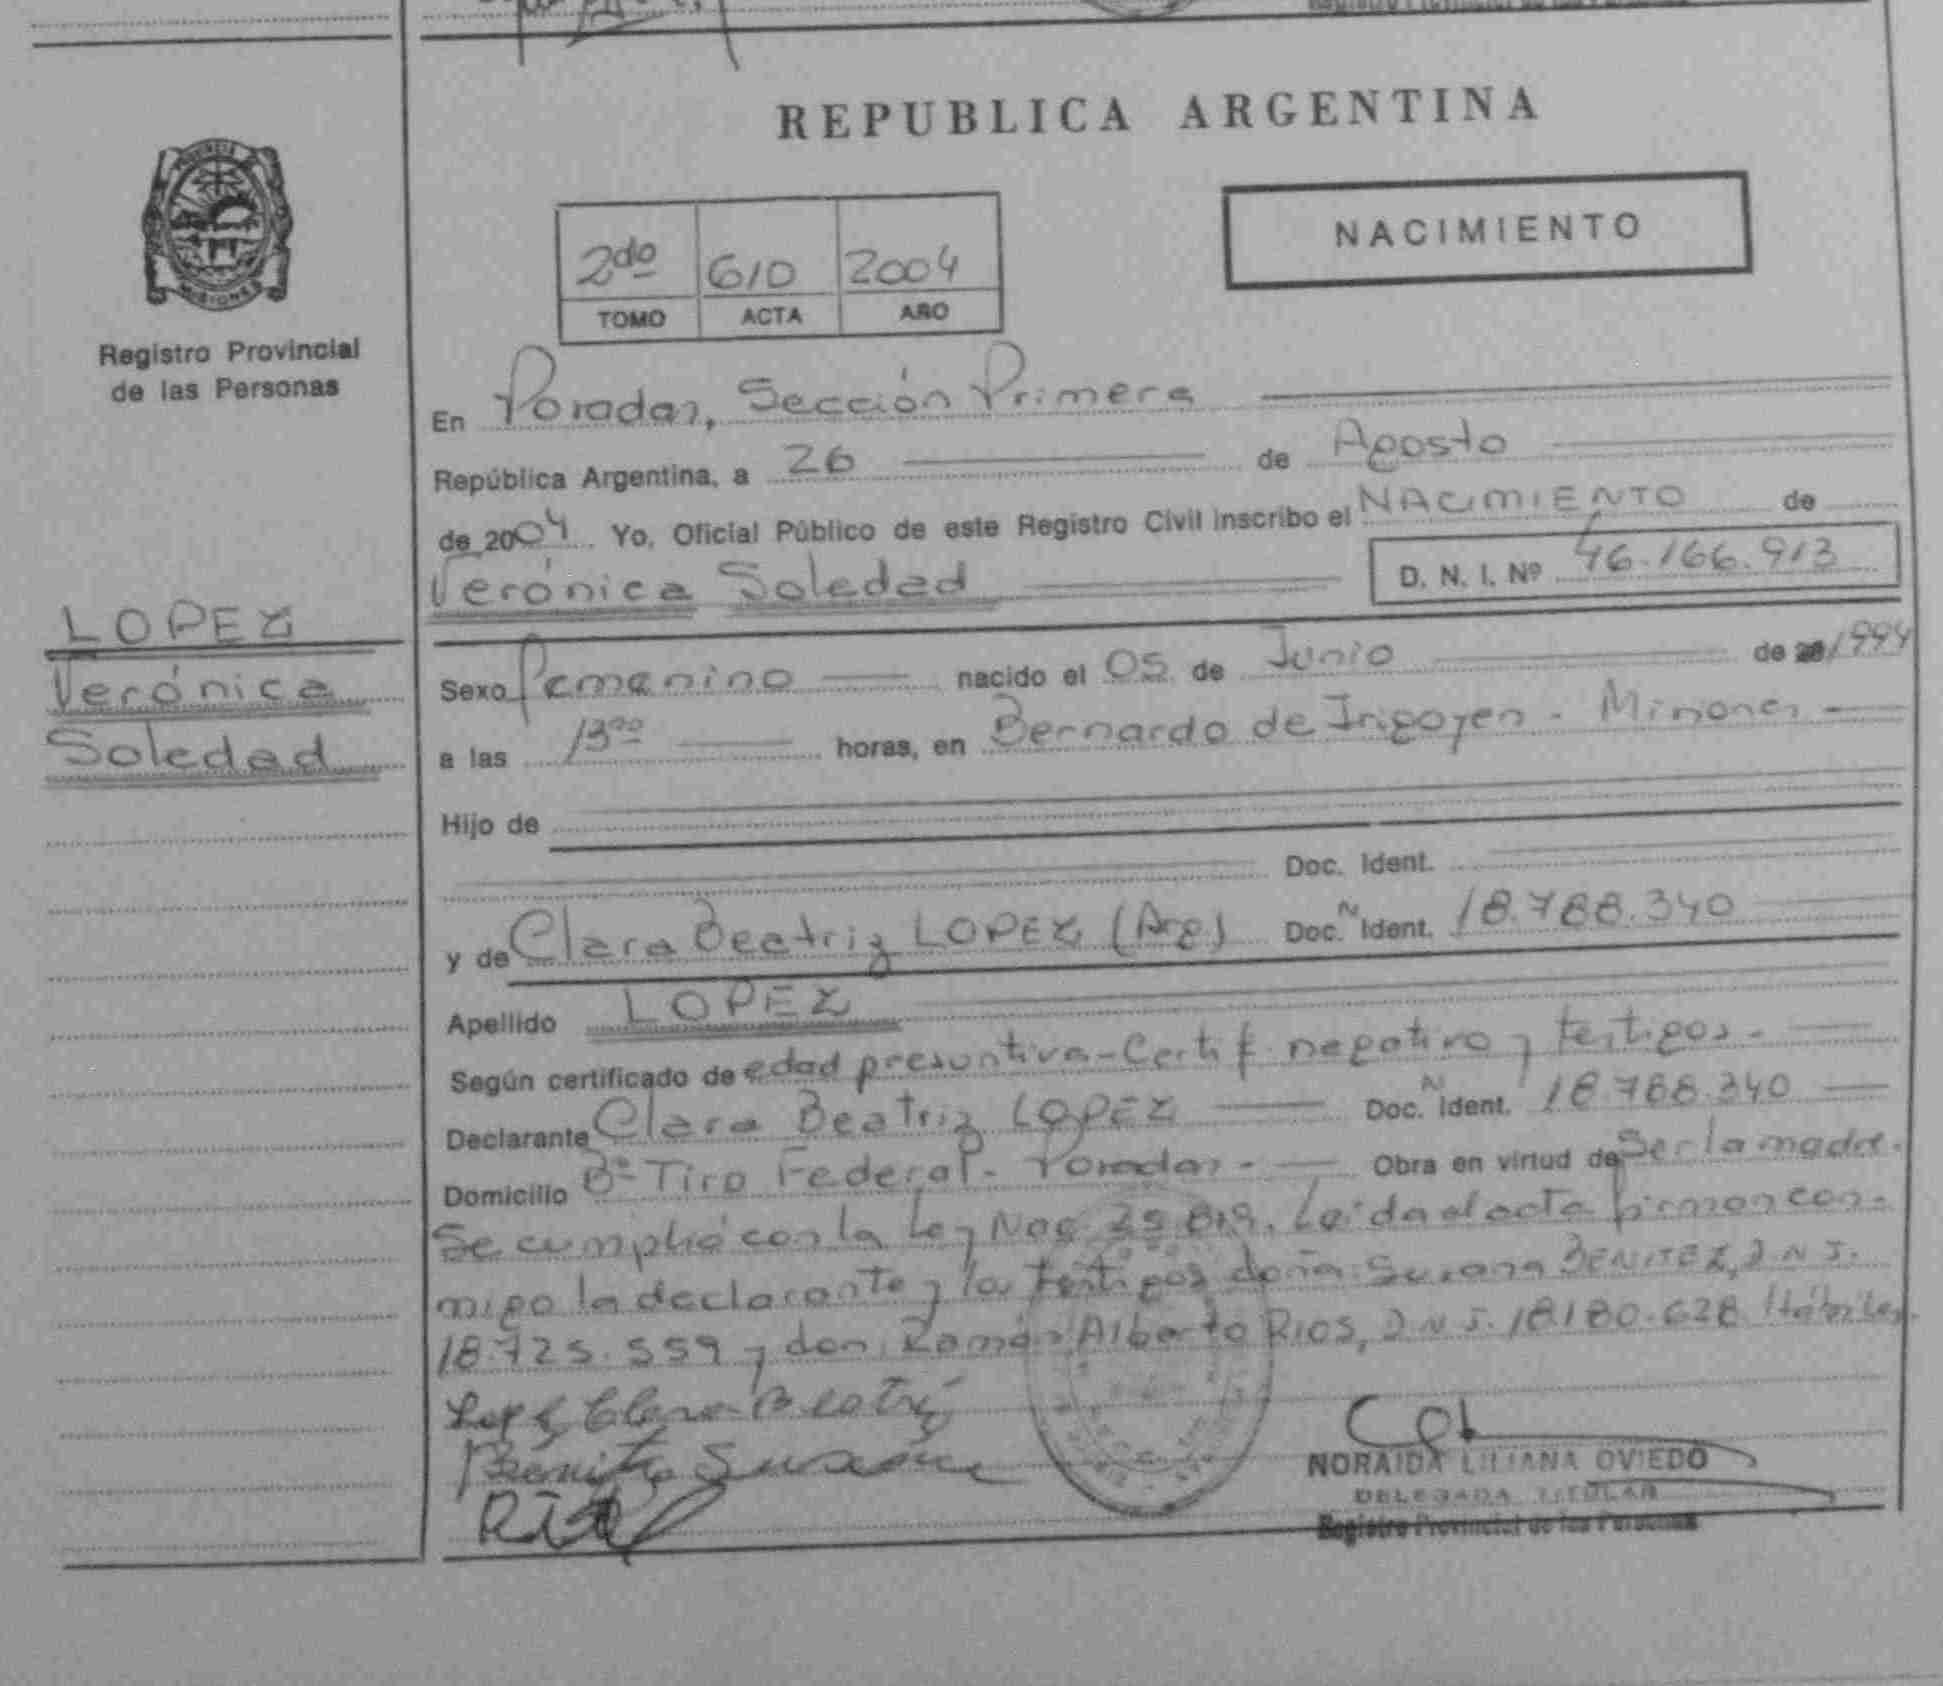 REPUBLICA ARGENTINA
PROVINCIA
MISIONES
Registro Provincial
de las Personas
NACIMIENTO
2do 610 2004
TOMO ACTA AÑO
En Posadas, Sección Primera
República Argentina, a 26 de Agosto
de 2004 Yo, Oficial Público de este Registro Civil inscribo el NACIMIENTO de
Verónica Soledad D. N. I. Nº 46.166.913
LOPEZ
Verónica
Soledad
Sexo Femenino nacido el 05 de Junio de 1994
a las 13 00 horas, en Bernardo de Irigoyen - Misiones
Hijo de
Doc. Ident.
y de Clara Beatriz LOPEZ (Arg) Doc. N Ident. 18.788.340
Apellido LOPEZ
Según certificado de edad presuntiva - Certif. negativo y testigos.-
Declarante Clara Beatriz LOPEZ Doc. N Ident. 18.788.340
Domicilio Bº Tiro Federal - Posadas - Obra en virtud de Ser la madre.
Se cumplió con la Ley Nac 25.819. Leída el acta firman con-
migo la declarante y los testigos doña Susana BENITEZ, D N I.
18.725.559 y don Ramón Alberto RIOS, D N I. 18.180.628 Hábiles.
Lopez Clara Beatriz
Benitez Susana
NORAIDA LILIANA OVIEDO
DELEGADA TITULAR
Registro Provincial de las Personas